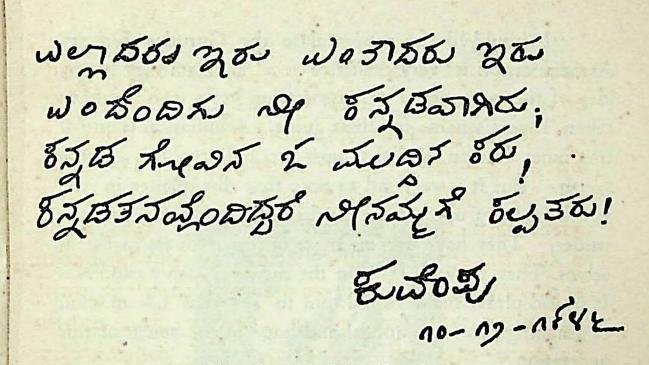 ಎಲ್ಲಾದರು ಇರು ಎಂತಾದರು ಇರು
ಎಂದೆಂದಿಗು ನೀ ಕನ್ನಡವಾಗಿರು;
ಕನ್ನಡ ಗೋವಿನ ಓ ಮುದ್ದಿನ ಕರು,
ಕನ್ನಡತನವೊಂದಿದ್ದರೆ ನೀನಮ್ಮಗೆ ಕಲ್ಪತರು!
ಕುವೆಂಪು